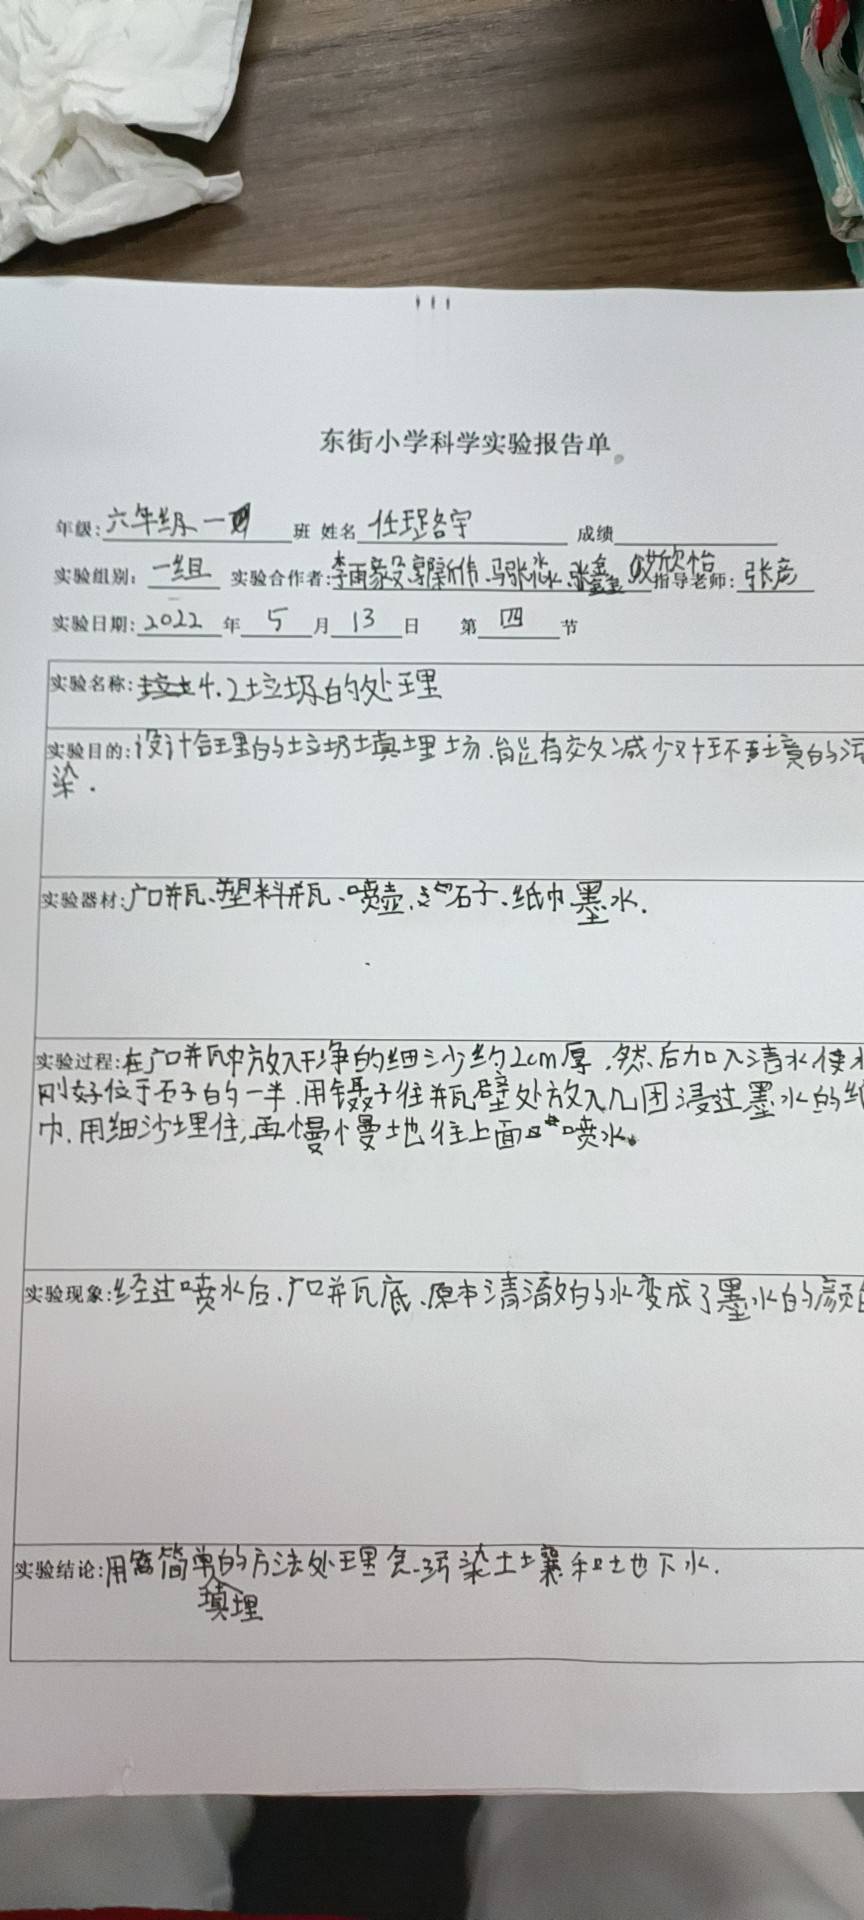 东街小学科学实验报告单
年级:六年级一 班 姓名 任珵路宇 成绩
实验组别:一组 实验合作者:李雨 指导老师:张彦
实验日期:2022年5月13日 第四节
实验名称:4.2垃圾的处理
实验目的:设计合理的垃圾填埋场.能有效减少对环境的污
染.
实验器材:广口瓶、塑料瓶、喷壶、石子、纸巾 墨水.
实验过程:在广口瓶中放入干净的细沙约2cm厚,然后加入清水使水
刚好位于石子的一半.用镊子往瓶壁处放入几团浸过墨水的纸
巾.用细沙埋住,再慢慢地往上面喷水.
实验现象:经过喷水后.广口瓶底、原本清澈的水变成了墨水的颜色
实验结论:用简单的填埋方法处理会污染土壤和地下水.